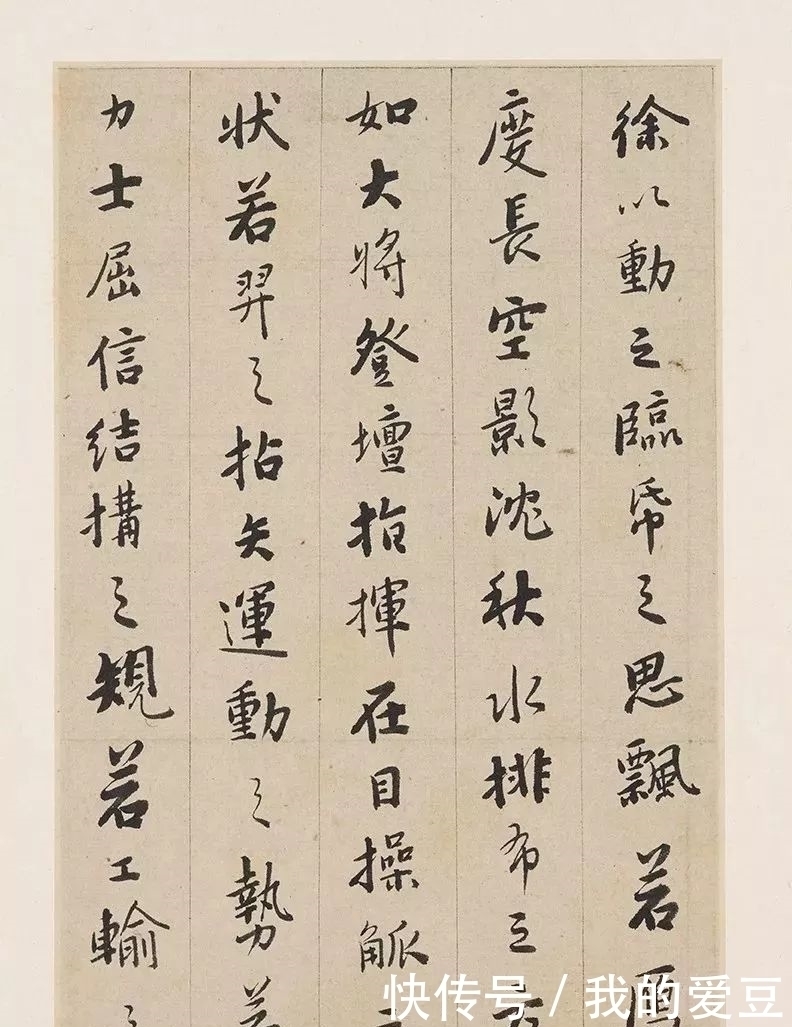 徐以動之臨帋之思飄若
度長空影沈秋水排布之
如大將登壇指揮在目操觚
状若羿之拈矢運動之勢若
力士屈信結搆之規若工輸之
快传号 / 我的爱豆